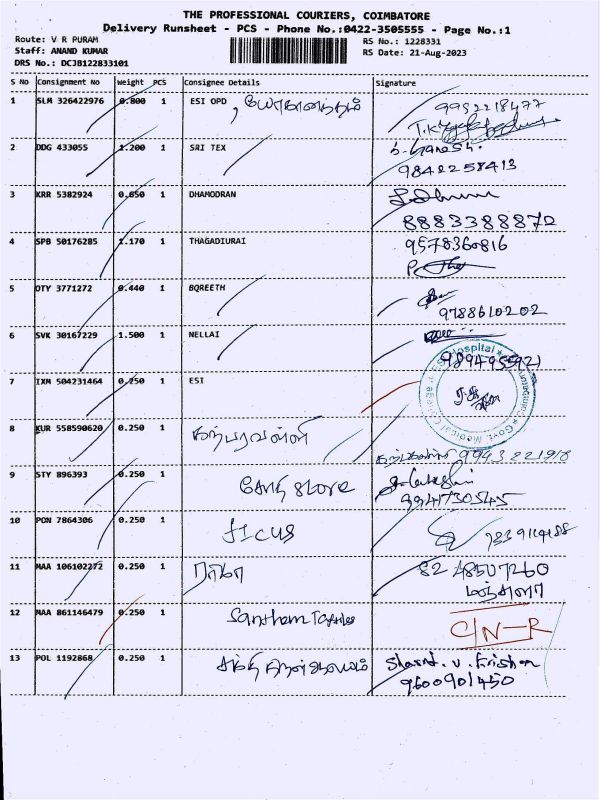 THE PROFESSIONAL COURIERS, COIMBATORE
Delivery Runsheet - PCS - Phone No.:0422-3505555 - Page No.:1
Route: V R PURAM
RS No.: 1228331
Staff: ANAND KUMAR
RS Date: 21-Aug-2023
DRS No.: DCJB122833101
S No Consignment No Weight PCS Consignee Details Signature
1 SLM 326422976 0.800 1 ESI OPD , யோகானந்தம் 9952218477
2 DDG 433055 1.200 1 SRI TEX b. Ganesh.
9842258413
3 KRR 5382924 0.650 1 DHAMODRAN
8883388872
4 SPB 50176285 1.170 1 THAGADIURAI 9578360816
5 OTY 3771272 0.440 1 BQREETH
9788610202
6 SVK 30167229 1.500 1 NELLAI
9894955921
7 IXM 504231464 0.250 1 ESI
Hospital
8 KUR 558590620 0.250 1 கற்பரவள்ளி
9943221918
9 STY 896393 0.250 1 கோகு store
9941730545
10 PON 7864306 0.250 1 JICUS
11 MAA 106102272 0.250 1 ராகா 8248507260
மஞ்சுளா
12 MAA 861146479 0.250 1 Santham C/N-R
13 POL 1192868 0.250 1 Sharat. v. Krishan
9600901450